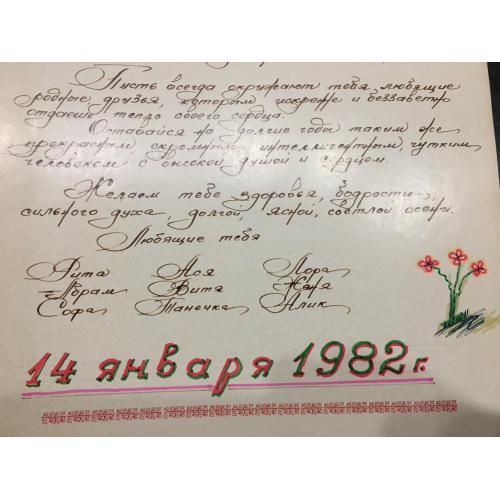 Пусть всегда окружают тебя любящие
родные, друзья, которым искренне и беззаветно
отдаешь тепло своего сердца.
Оставайся на долгие годы таким же
прекрасным, скромным, интеллигентным, чутким
человеком с высокой душой и сердцем.
Желаем тебе здоровья, бодрости,
сильного духа, долгой, ясной, светлой осени.
Любящие тебя
Рита Ася Лора
Абрам Вита Женя
Софа Танечка Алик
14 января 1982 г.